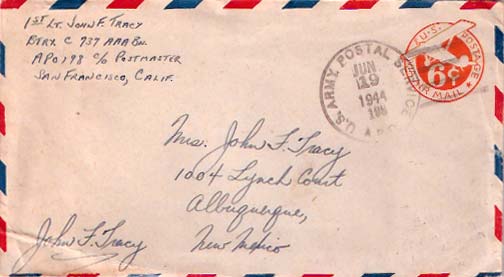 1st Lt. John F. Tracy
Btry. C 737 AAA Bn.
APO 198 c/o Postmaster
San Francisco, Calif.
U.S. POSTAGE
6¢
AIR MAIL
U.S. ARMY POSTAL SERVICE
JUN
19
1944
198
Mrs. John F. Tracy
1004 Lynch Court
Albuquerque,
New Mexico
John F. Tracy